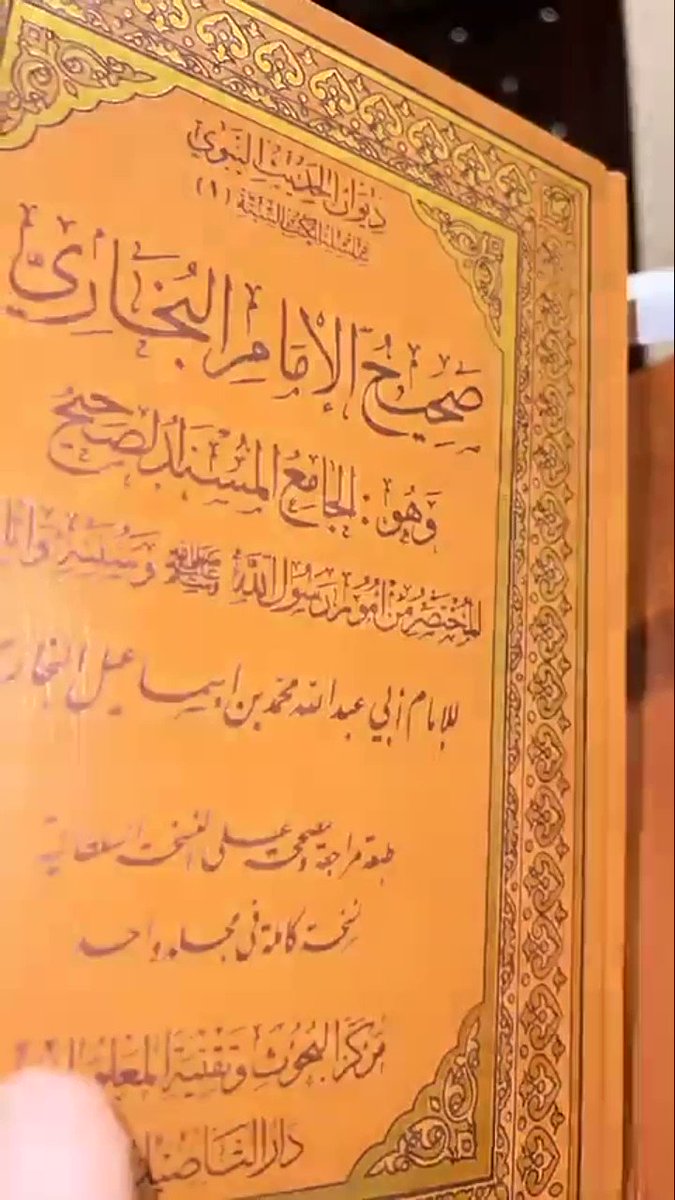 ديوان الحديث النبوي
سلسلة الكتب الستة (١)
صَحِيحُ الإِمَامِ البُخَارِيِّ
وَهُوَ: الجَامِعُ المُسْنَدُ الصَّحِيحُ
المُخْتَصَرُ مِنْ أُمُورِ رَسُولِ اللَّهِ ﷺ وَسُنَنِهِ
للإمام أبي عبد الله محمد بن إسماعيل البخاري
طبعة مراجعة ومصححة على النسخة السلطانية
نسخة كاملة في مجلد واحد
مَرْكَزُ البُحُوثِ وَتَقْنِيَةِ المَعْلُومَاتِ
دار التأصيل